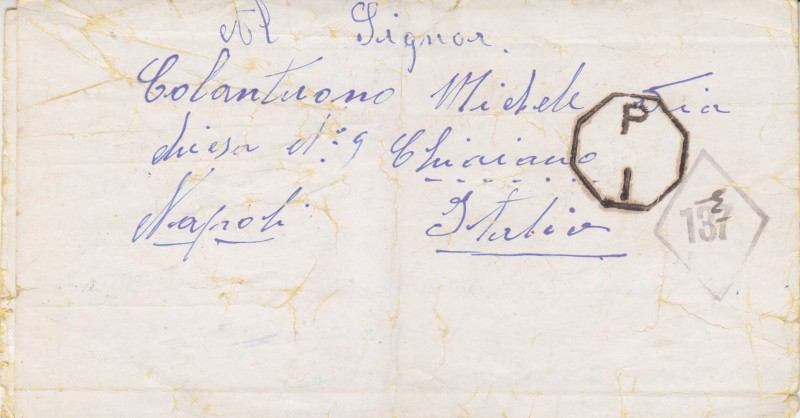 Al Signor.
Colantuono Michele Via
chiesa N:º 9 Chiaiano
Napoli Italia
P
I
137